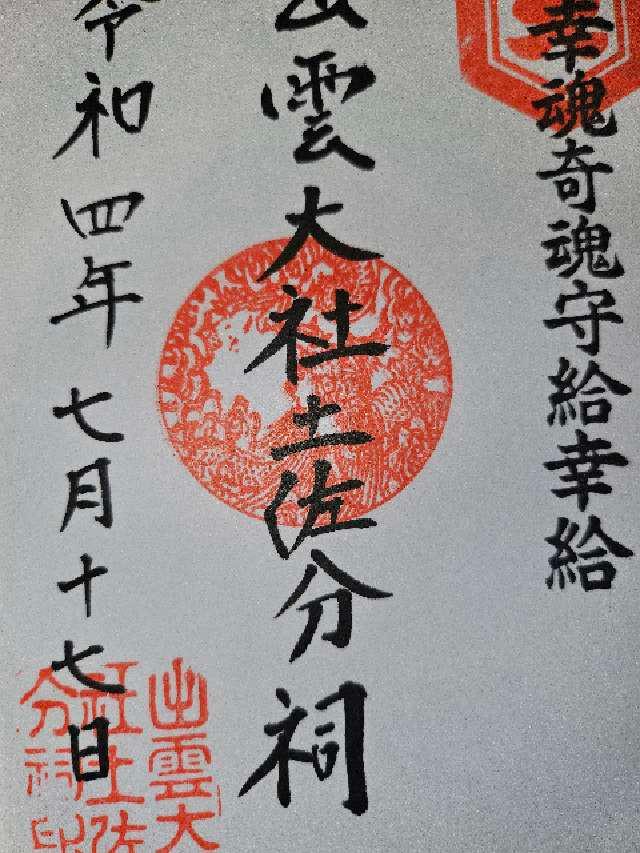 幸魂奇魂守給幸給
出雲大社土佐分祠
令和四年七月十七日
出雲大
社土佐
分祠印